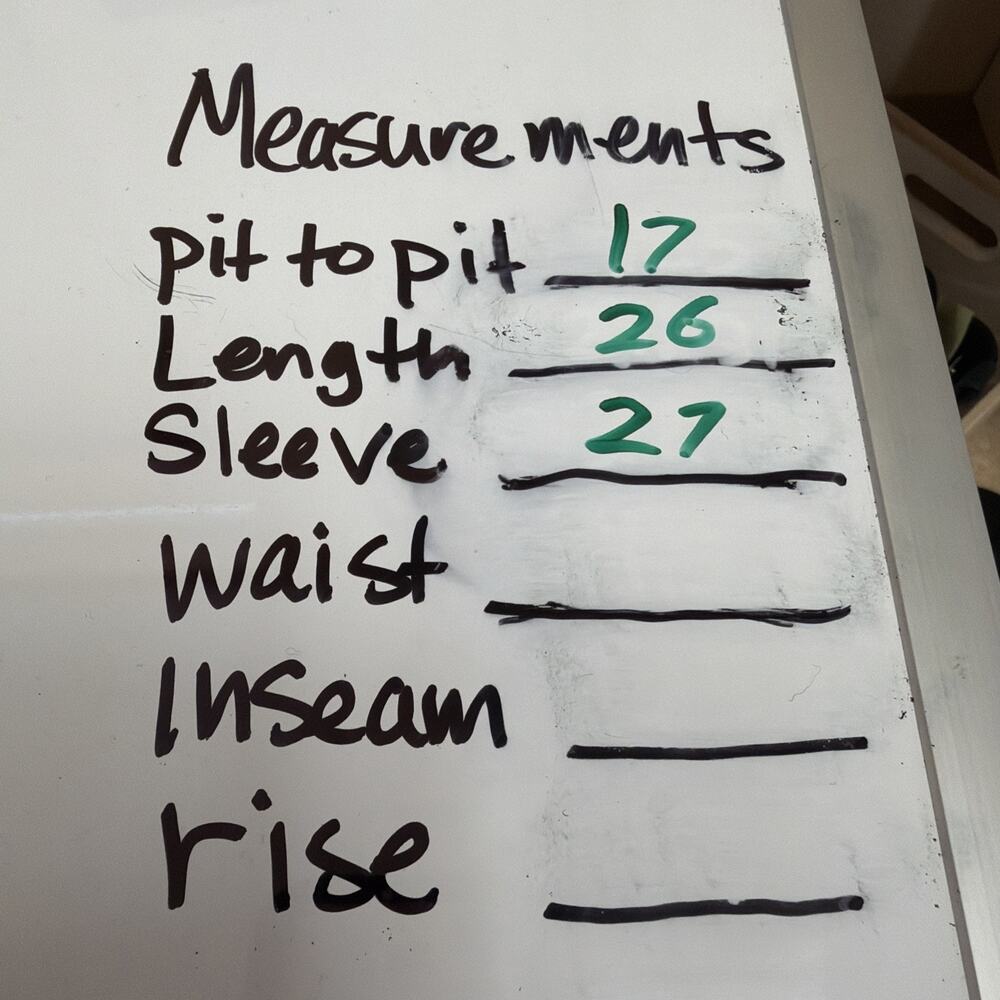 Measurements
pit to pit 17
Length 26
Sleeve 27
waist
Inseam
rise